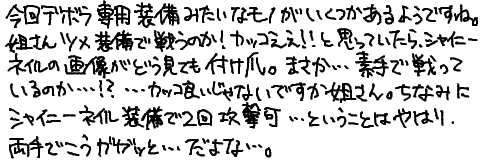 今回デボラ専用装備みたいなモノがいくつかあるようですね。
姐さんツメ装備で戦うのか！カッコええ！！と思っていたら、シャイニー
ネイルの画像がどう見ても付け爪。まさか…素手で戦って
いるのか…！？…カッコ良いじゃないですか姐さん。ちなみに
シャイニーネイル装備で2回攻撃可…ということはやはり、
両手でこうガガッと…だよな…。